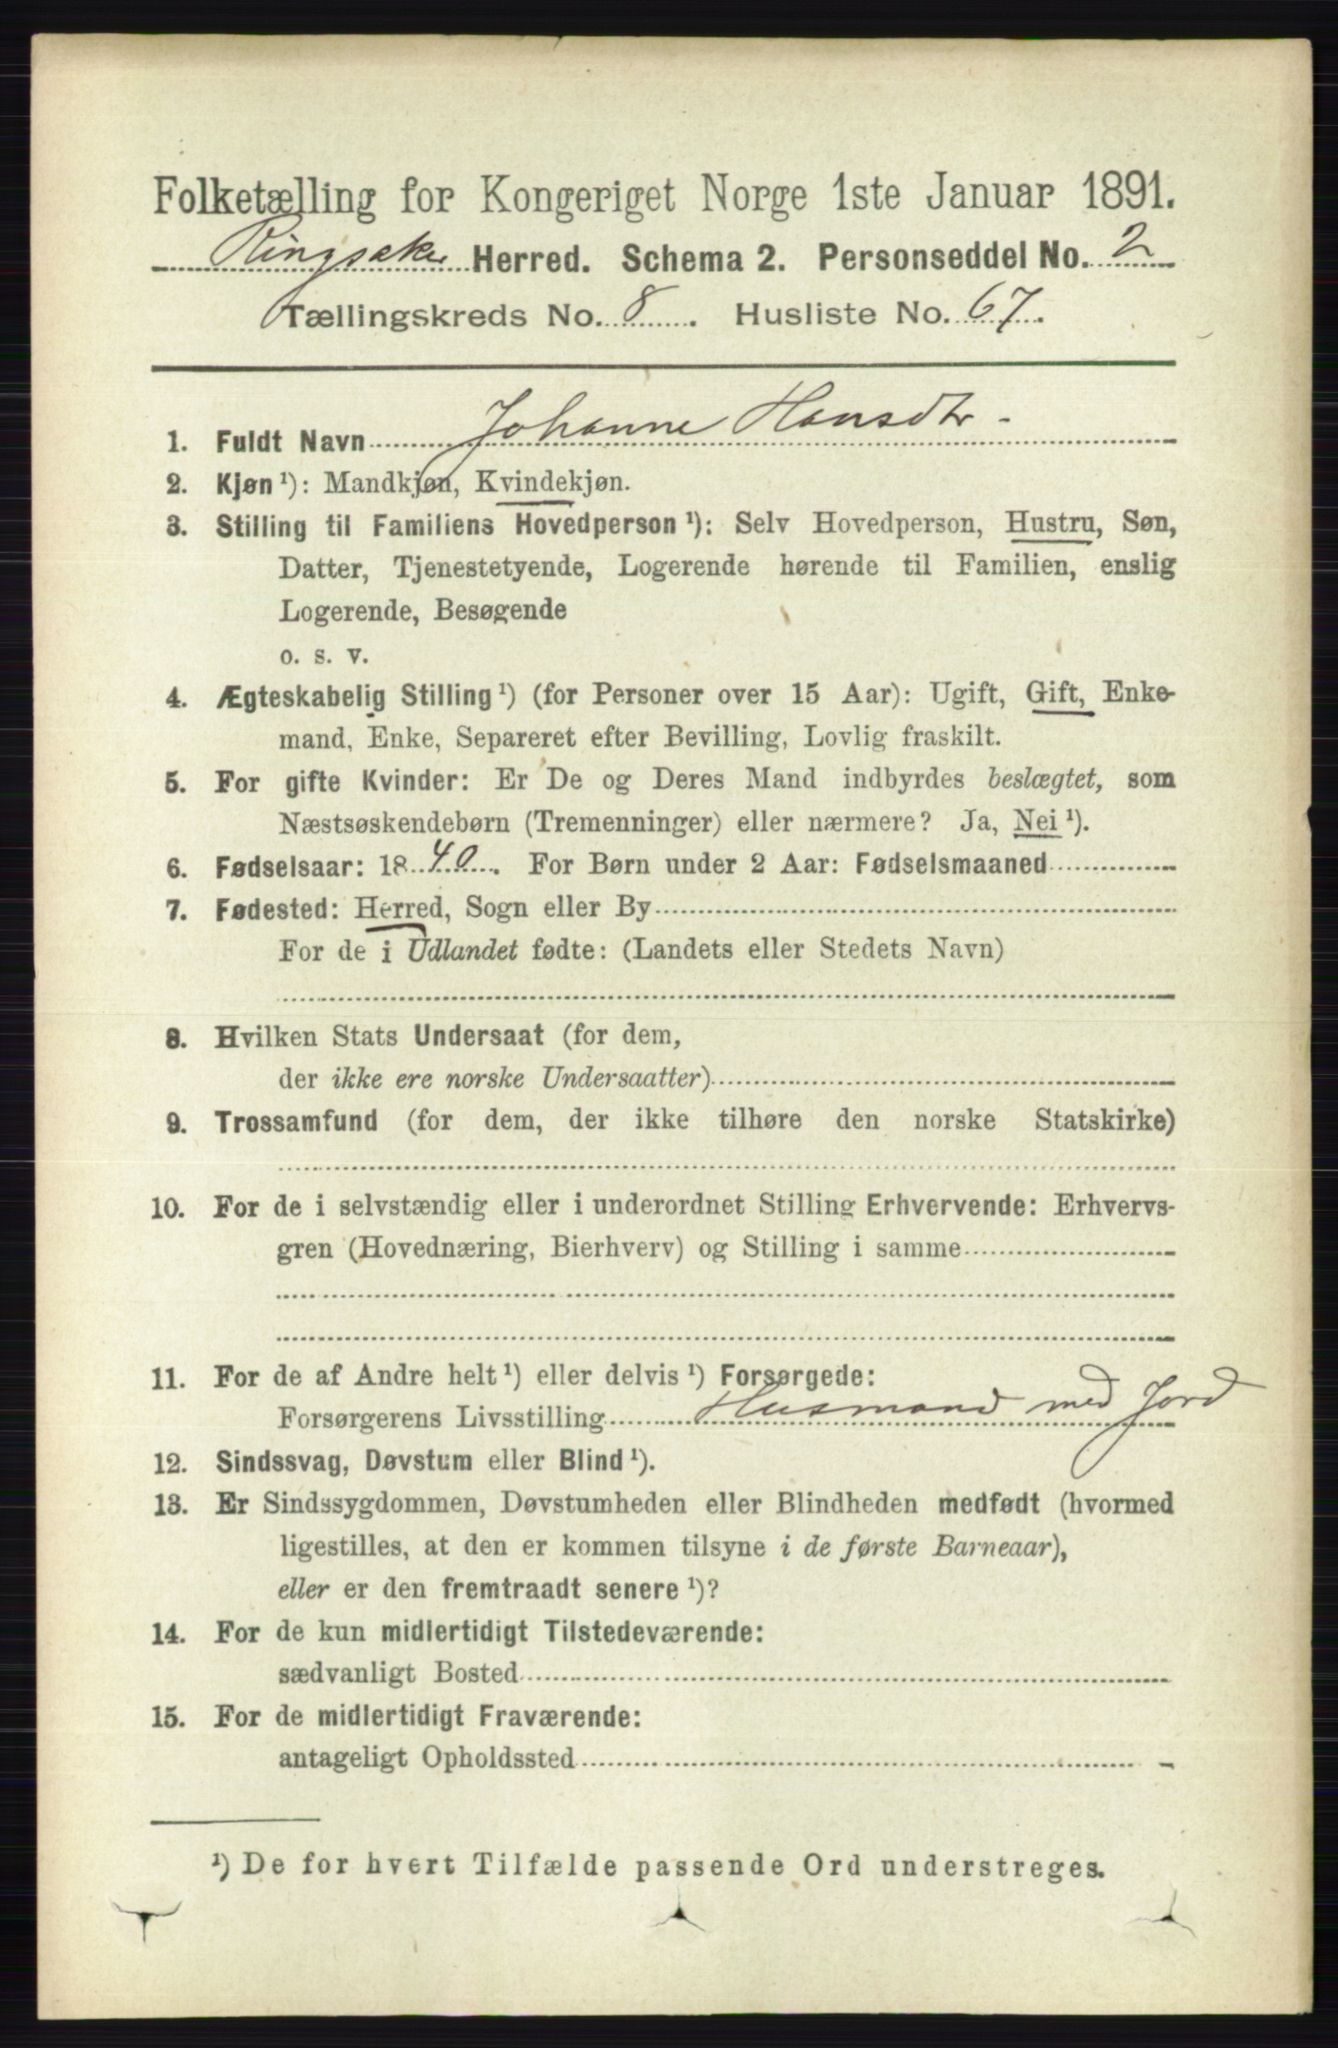 Folketælling for Kongeriget Norge 1ste Januar 1891.
Ringsaker Herred. Schema 2. Personseddel No. 2
Tællingskreds No. 8. Husliste No. 67.
1. Fuldt Navn Johanne Hansdtr -
2. Kjøn ¹): Mandkjøn, Kvindekjøn.
3. Stilling til Familiens Hovedperson ¹): Selv Hovedperson, Hustru, Søn,
Datter, Tjenestetyende, Logerende hørende til Familien, enslig
Logerende, Besøgende
o. s. v.
4. Ægteskabelig Stilling ¹) (for Personer over 15 Aar): Ugift, Gift, Enke-
mand, Enke, Separeret efter Bevilling, Lovlig fraskilt.
5. For gifte Kvinder: Er De og Deres Mand indbyrdes beslægtet, som
Næstsøskendebørn (Tremenninger) eller nærmere? Ja, Nei ¹).
6. Fødselsaar: 1840. For Børn under 2 Aar: Fødselsmaaned
7. Fødested: Herred, Sogn eller By
For de i Udlandet fødte: (Landets eller Stedets Navn)
8. Hvilken Stats Undersaat (for dem,
der ikke ere norske Undersaatter)
9. Trossamfund (for dem, der ikke tilhøre den norske Statskirke)
10. For de i selvstændig eller i underordnet Stilling Erhvervende: Erhvervs-
gren (Hovednæring, Bierhverv) og Stilling i samme
11. For de af Andre helt ¹) eller delvis ¹) Forsørgede:
Forsørgerens Livsstilling Husmand med Jord
12. Sindssvag, Døvstum eller Blind ¹).
13. Er Sindssygdommen, Døvstumheden eller Blindheden medfødt (hvormed
ligestilles, at den er kommen tilsyne i de første Barneaar),
eller er den fremtraadt senere ¹)?
14. For de kun midlertidigt Tilstedeværende:
sædvanligt Bosted
15. For de midlertidigt Fraværende:
antageligt Opholdssted
¹) De for hvert Tilfælde passende Ord understreges.